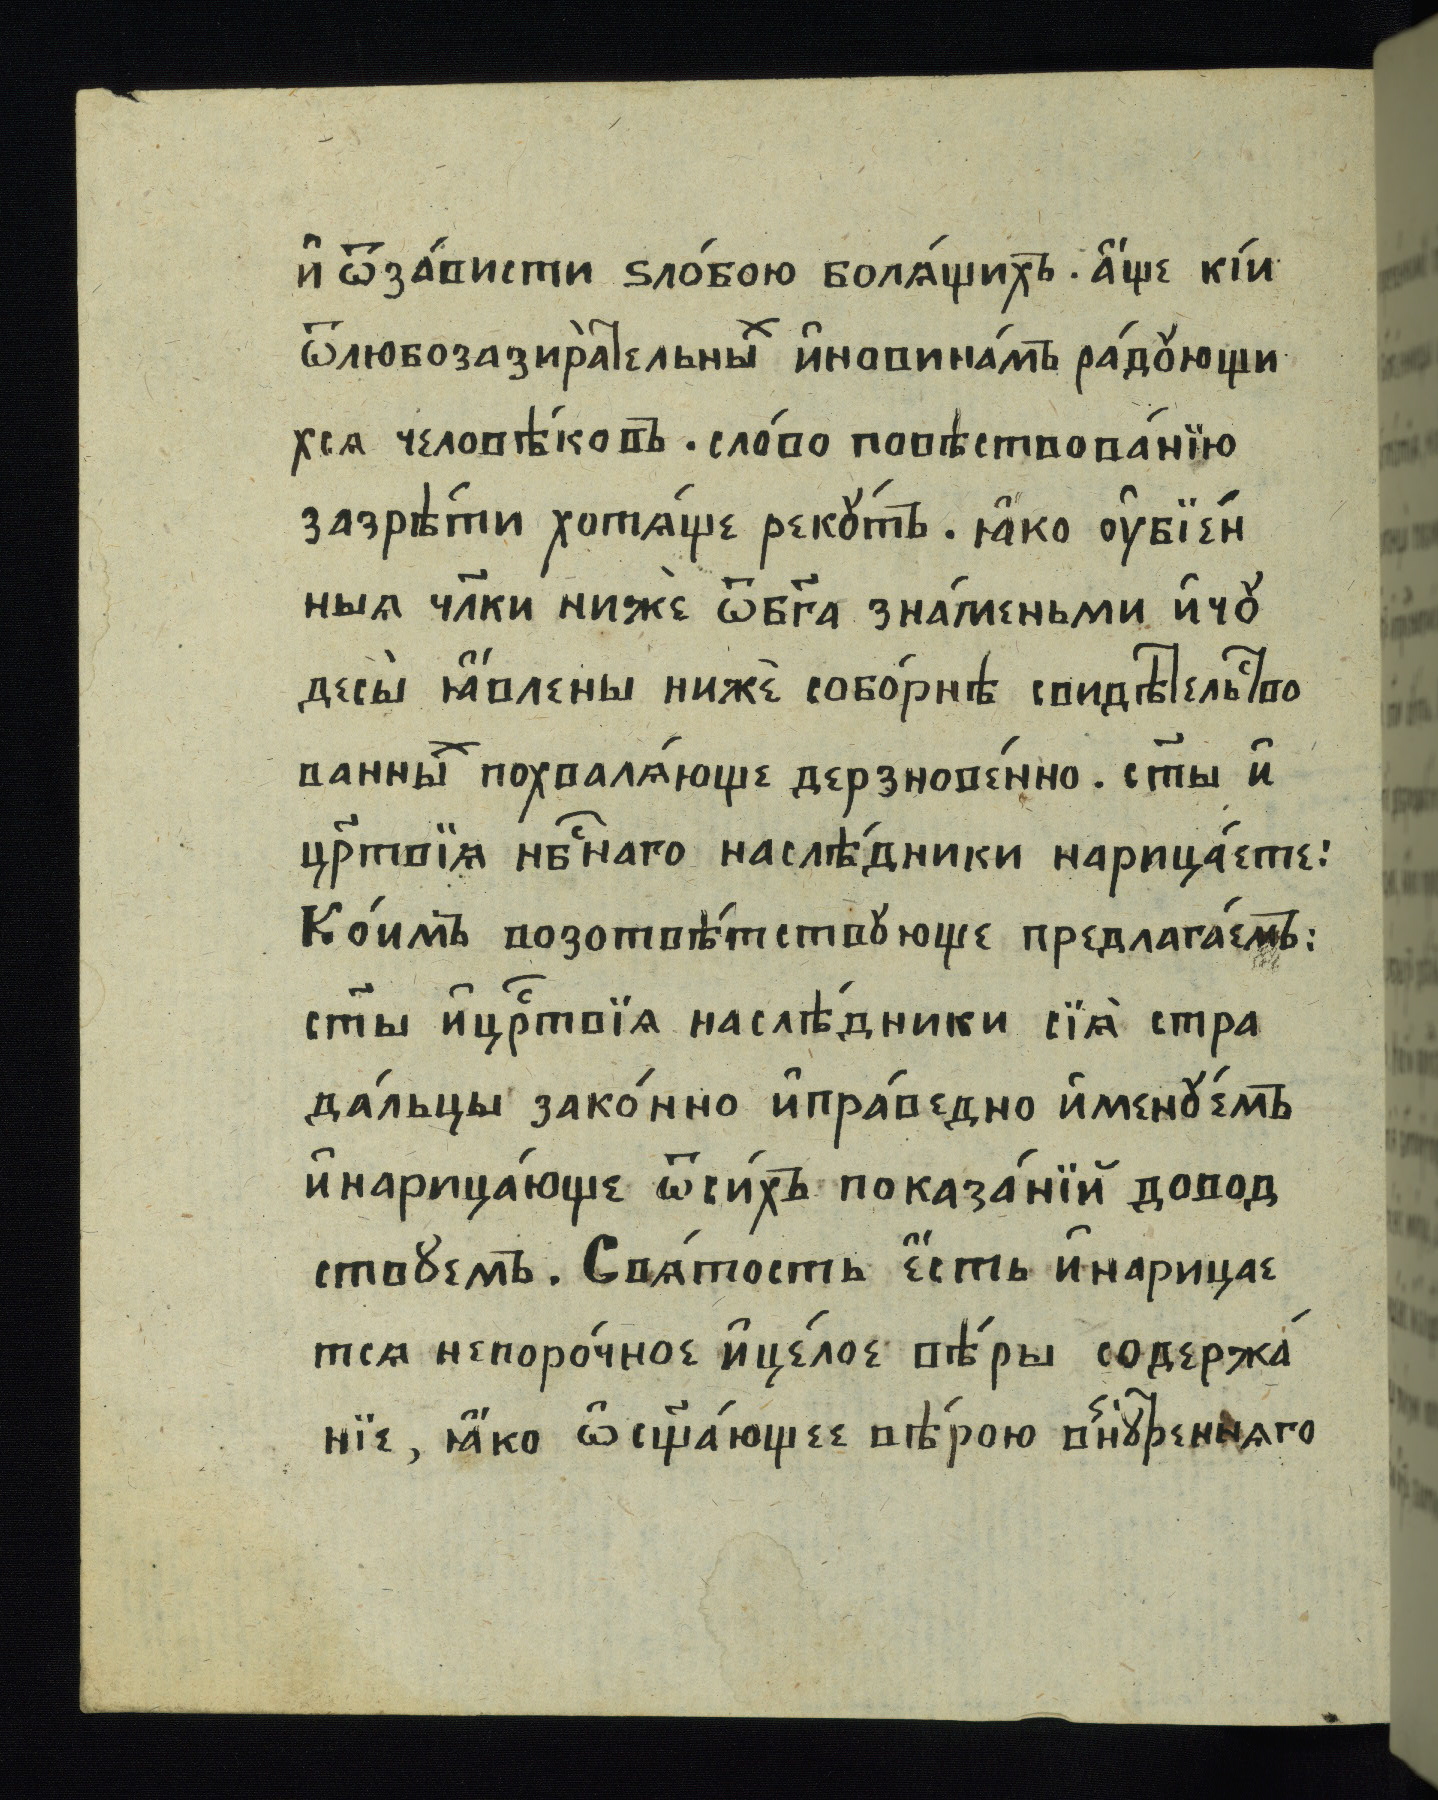 и҆̀ ѿза́висти ѕло́бою болѧ́щих̾ъ . а҆́ще кі́и
ѿлюбозазира̀тельныⷯ и҆новина́м̾ъ ра́дꙋющи
хсѧ человѣ́ков̾ъ . сло́во повѣствова́нїю
зазрѣ́ти хотѧ́ще рекꙋ́т̾ъ . ꙗ҆́ко ᲂу҆бїе́н
ныѧ чл҃ки нижѐ ѿбг҃а зна́меньми и҆чꙋ
десы̀ ꙗ҆́влены нижѐ собо́рнѣ свидѣⷮельⷭ҇ⷮво
ванныⷯ похвалѧ́юще дерзнове́нно . ст҃ы и҆
цр҃твїѧ нбⷭ҇наго наслѣ́дники нарица́ете:
Ко́им̾ъ возотвѣ́тствꙋюще предлага́ем̾ъ:
ст҃ы и҆црⷭ҇твїѧ наслѣ́дники сїѧ̀ стра
да́льцы зако́нно и҆пра́ведно и҆менꙋ́ем̾ъ
и҆нарица́юще ѿси́х̾ъ показа́нїй довод
ствꙋем̾ъ . Свѧ́тость є҆́сть и҆нарицае
тсѧ непоро́чное и҆це́лое вѣ́ры содержа́
нїе, ꙗ҆́ко ѡ҆сщ҃а́ющее вѣ́рою внꙋ́ⷮреннѧго